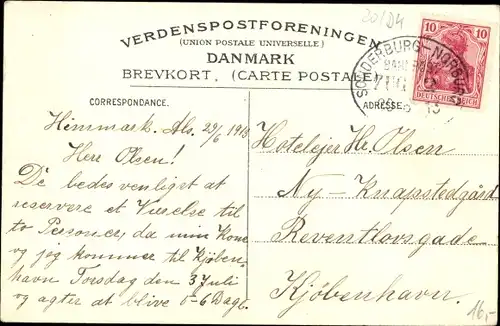 30/04
VERDENSPOSTFORENINGEN
(UNION POSTALE UNIVERSELLE)
DANMARK
BREVKORT. (CARTE POSTALE)
10 10
DEUTSCHES REICH
SONDERBURG-NORBURG
BAHNPOST
ZUG
CORRESPONDANCE.
ADRESSE:
Himmark. Als. 29/6 1913
Herr Olsen!
De bedes venligst at
reservere et Værelse til
to Personer, da min Kone
og jeg kommer til Kjøben-
havn Torsdag den 3 Juli
og agter at blive 5-6 Dage.
Hotelejer Hr. Olsen
Ny-Knapstedgård
Reventlovsgade
Kjöbenhavn.
16,-